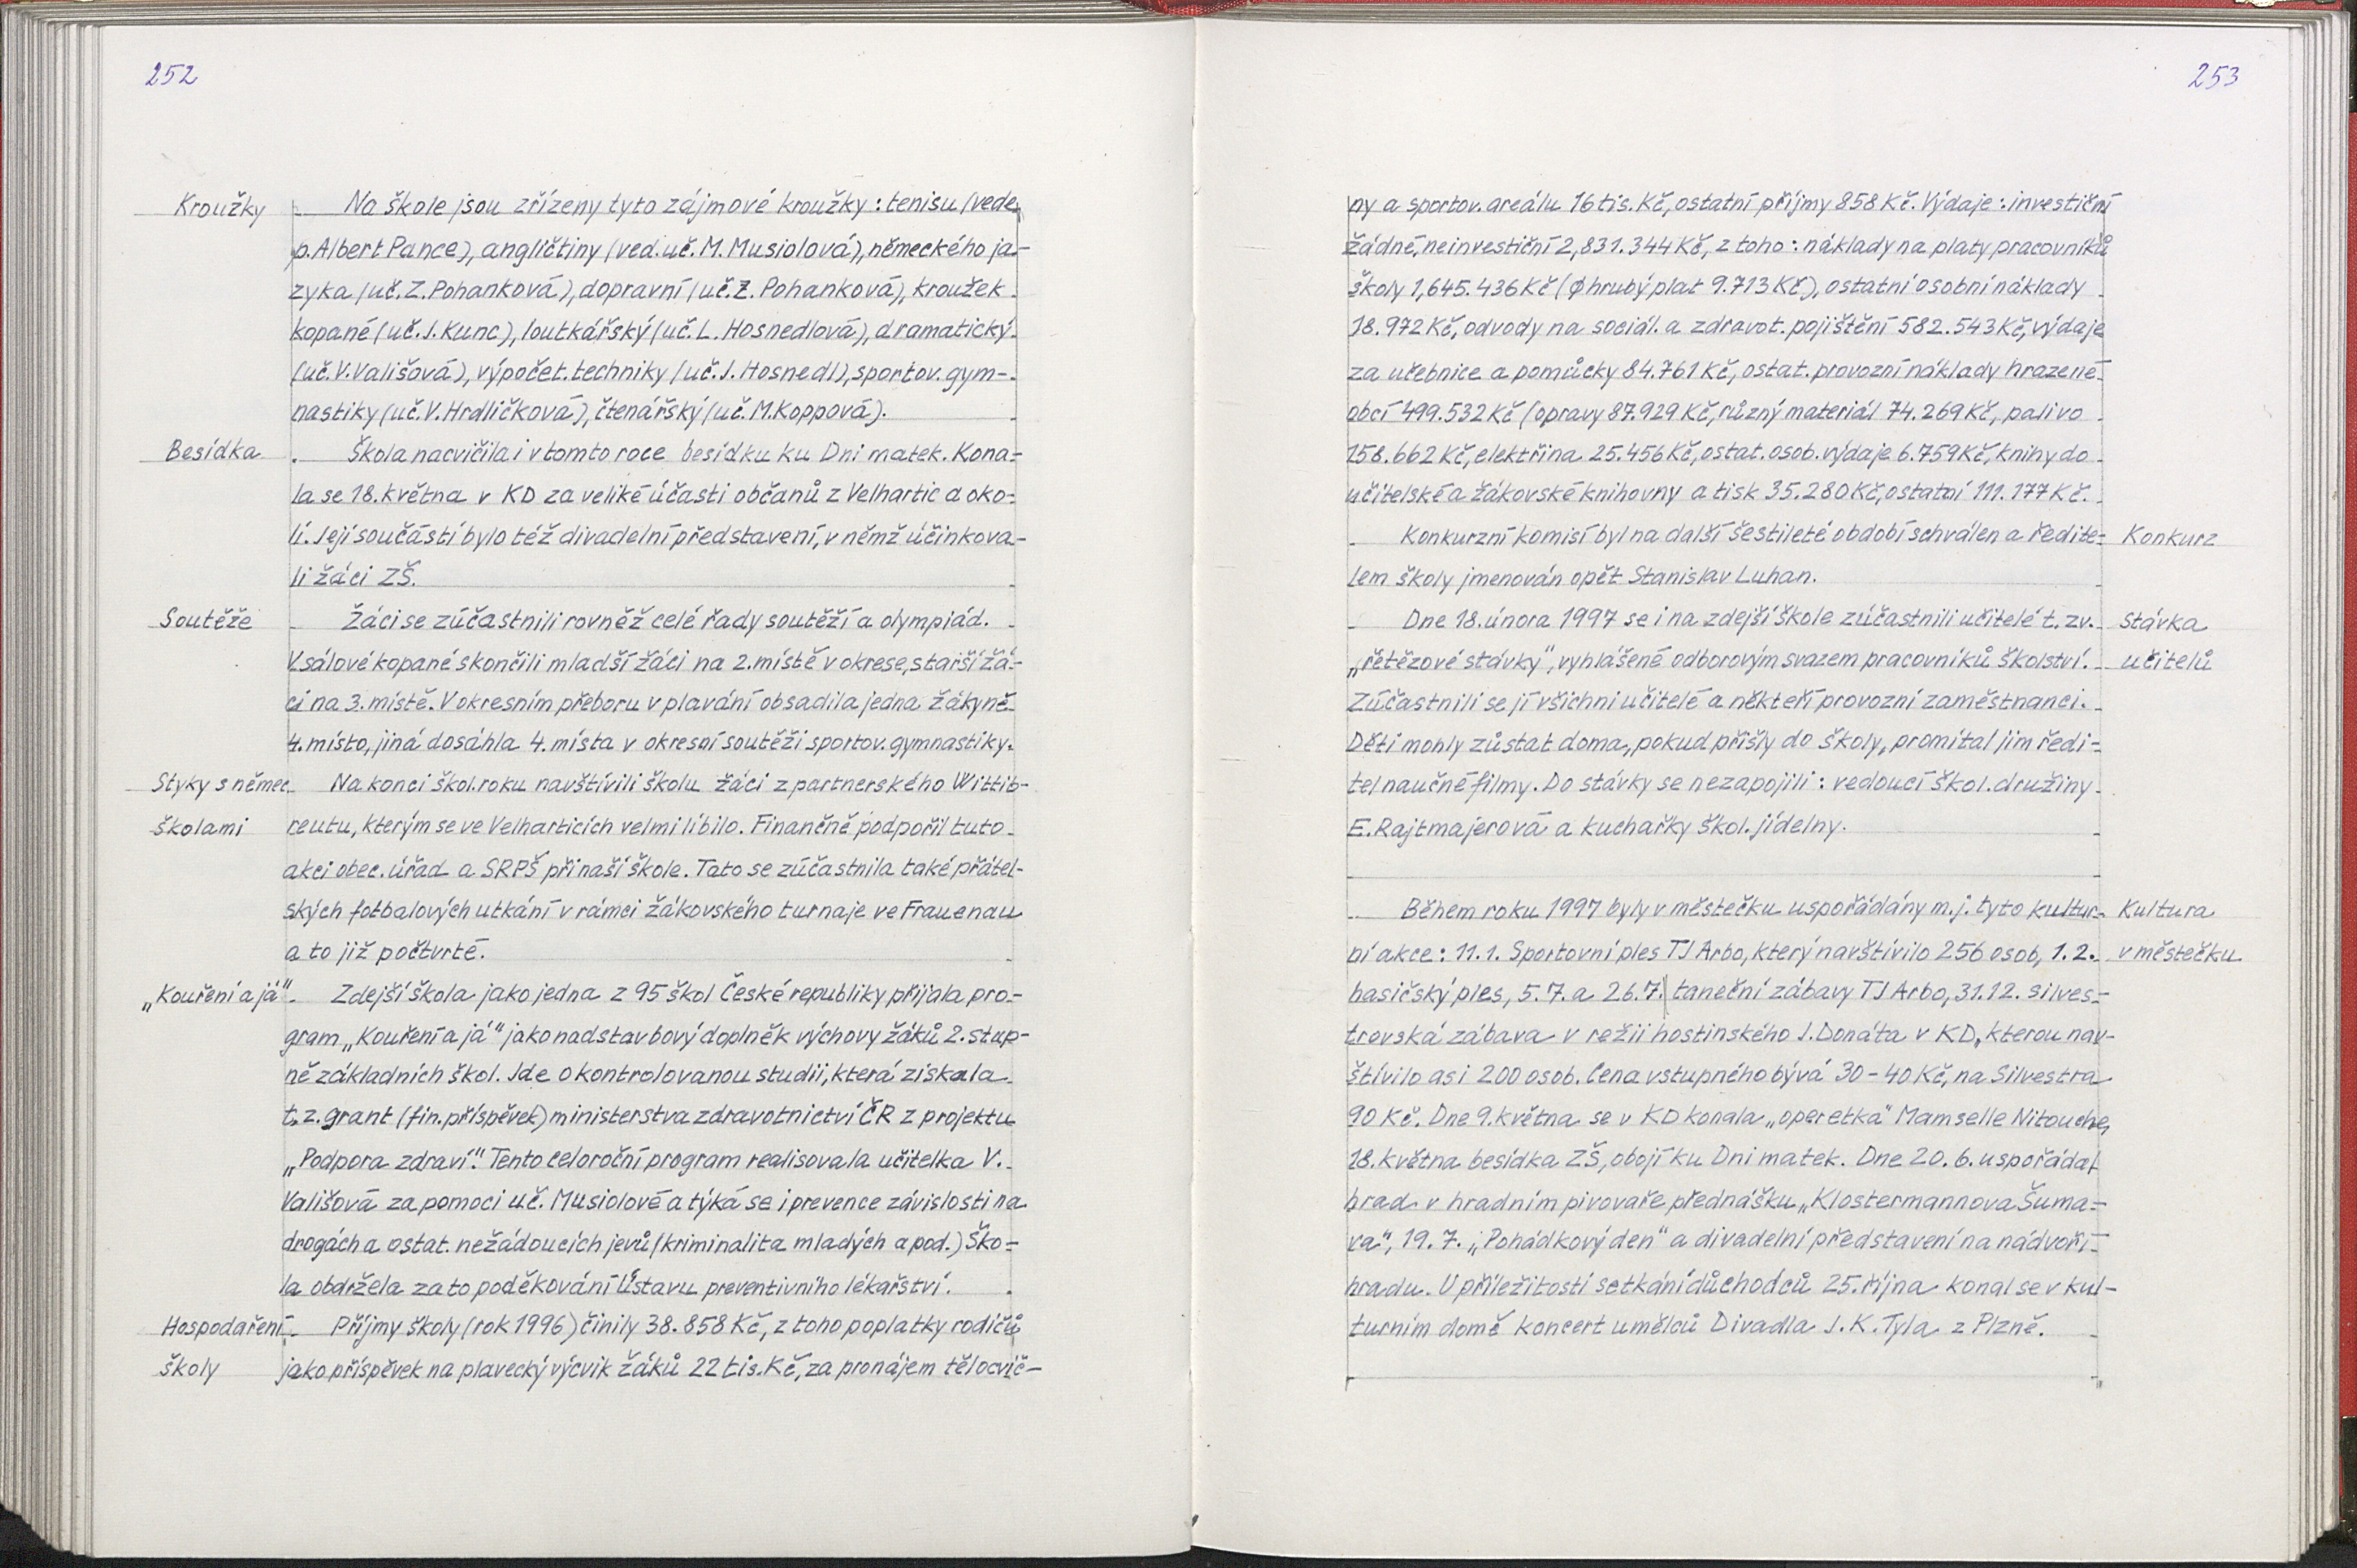 252
Kroužky Na škole jsou zřízeny tyto zájmové kroužky: tenisu (vede
p. Albert Pance), angličtiny (ved. uč. M. Musiolová), německého ja-
zyka (uč. Z. Pohanková), dopravní (uč. Z. Pohanková), kroužek
kopané (uč. J. Kunc), loutkářský (uč. L. Hosnedlová), dramatický
(uč. V. Vališová), výpočet. techniky (uč. J. Hosnedl), sportov. gym-
nastiky (uč. V. Hrdličková), čtenářský (uč. M. Koppová).
Besídka Škola nacvičila i v tomto roce besídku ku Dni matek. Kona-
la se 18. května v KD za veliké účasti občanů z Velhartic a oko-
lí. Její součástí bylo též divadelní představení, v němž účinkova-
li žáci ZŠ.
Soutěže Žáci se zúčastnili rovněž celé řady soutěží a olympiád.
V sálové kopané skončili mladší žáci na 2. místě v okrese, starší žá-
ci na 3. místě. V okresním přeboru v plavání obsadila jedna žákyně
4. místo, jiná dosáhla 4. místa v okresní soutěži sportov. gymnastiky.
Styky s němec. Na konci škol. roku navštívili školu žáci z partnerského Wittib-
školami reutu, kterým se ve Velharticích velmi líbilo. Finančně podpořil tuto
akci obec. úřad a SRPŠ při naší škole. Tato se zúčastnila také přátel-
ských fotbalových utkání v rámci žákovského turnaje ve Frauenau
a to již počtvrté.
„Kouření a já“ Zdejší škola jako jedna z 95 škol České republiky přijala pro-
gram „Kouření a já“ jako nadstavbový doplněk výchovy žáků 2. stup-
ně základních škol. Jde o kontrolovanou studii, která získala
t. z. grant (fin. příspěvek) ministerstva zdravotnictví ČR z projektu
„Podpora zdraví“. Tento celoroční program realisovala učitelka V.
Vališová za pomoci uč. Musiolové a týká se i prevence závislosti na
drogách a ostat. nežádoucích jevů (kriminalita mladých a pod.) Ško-
la obdržela za to poděkování Ústavu preventivního lékařství.
Hospodaření Příjmy školy (rok 1996) činily 38.858 Kč, z toho poplatky rodičů
školy jako příspěvek na plavecký výcvik žáků 22 tis. Kč, za pronájem tělocvič-
253
ny a sportov. areálu 16 tis. Kč, ostatní příjmy 858 Kč. Výdaje: investiční
žádné, neinvestiční 2,831.344 Kč, z toho: náklady na platy pracovníků
školy 1,645.436 Kč (ϕ hrubý plat 9.713 Kč), ostatní osobní náklady
18.972 Kč, odvody na sociál. a zdravot. pojištění 582.543 Kč, výdaje
za učebnice a pomůcky 84.761 Kč, ostat. provozní náklady hrazené
obcí 499.532 Kč (opravy 87.929 Kč, různý materiál 74.269 Kč, palivo
158.662 Kč, elektřina 25.456 Kč, ostat. osob. výdaje 6.759 Kč, knihy do
učitelské a žákovské knihovny a tisk 35.280 Kč, ostatní 111.177 Kč.
Konkurzní komisí byl na další šestileté období schválen a ředite- Konkurz
lem školy jmenován opět Stanislav Luhan.
Dne 18. února 1997 se i na zdejší škole zúčastnili učitelé t. zv. Stávka
„řetězové stávky“, vyhlášené odborovým svazem pracovníků školství. učitelů
Zúčastnili se jí všichni učitelé a někteří provozní zaměstnanci.
Děti mohly zůstat doma, pokud přišly do školy, promítal jim ředi-
tel naučné filmy. Do stávky se nezapojili: vedoucí škol. družiny
E. Rajtmajerová a kuchařky škol. jídelny.
Během roku 1997 byly v městečku uspořádány m. j. tyto kultur- Kultura
ní akce: 11. 1. Sportovní ples TJ Arbo, který navštívilo 256 osob, 1. 2. v městečku
hasičský ples, 5. 7. a 26. 7. taneční zábavy TJ Arbo, 31. 12. silves-
trovská zábava v režii hostinského J. Donáta v KD, kterou nav-
štívilo asi 200 osob. Cena vstupného bývá 30-40 Kč, na Silvestra
90 Kč. Dne 9. května se v KD konala „operetka“ Mamselle Nitouche,
18. května besídka ZŠ, obojí ku Dni matek. Dne 20. 6. uspořádal
hrad v hradním pivovaře přednášku „Klostermannova Šuma-
va“, 19. 7. „Pohádkový den“ a divadelní představení na nádvoří
hradu. U příležitosti setkání důchodců 25. října konal se v kul-
turním domě koncert umělců Divadla J. K. Tyla z Plzně.